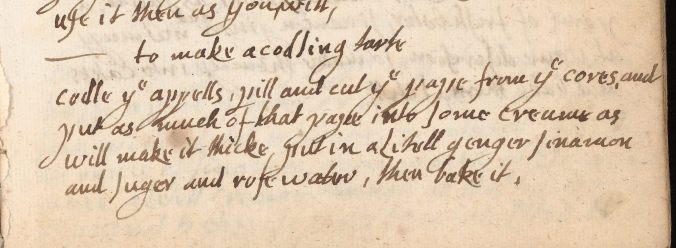 use it then as you pleas,
to make a codling tarte
codle yᵉ appells, pill and cut yᵉ pappe from yᵉ cores, and
put as much of that pappe into some creame as
will make it thicke, put in a Litell genger sinamon
and suger and rose water, then bake it.